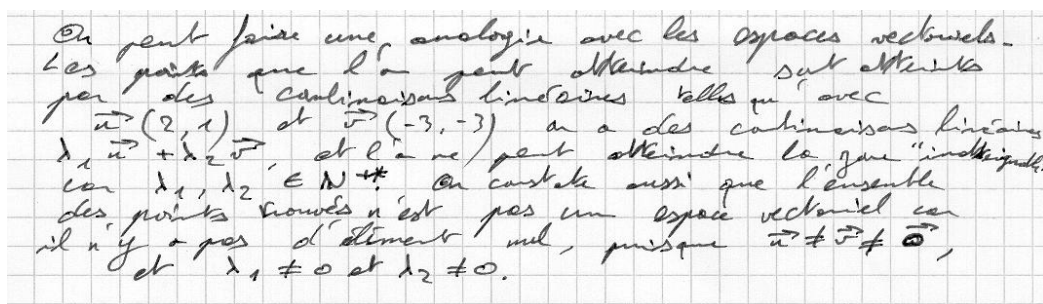 On peut faire une analogie avec les espaces vectoriels.
Les points que l'on peut atteindre sont atteints
par des combinaisons linéaires telles qu'avec
u⃗ (2, 1) et v⃗ (-3, -3) on a des combinaisons linéaires
λ₁ u⃗ + λ₂ v⃗, et l'on ne peut atteindre la zone "inatteignable"
car λ₁, λ₂ ∈ N*. On constate aussi que l'ensemble
des points trouvés n'est pas un espace vectoriel car
il n'y a pas d'élément nul, puisque u⃗ ≠ v⃗ ≠ 0⃗,
et λ₁ ≠ 0 et λ₂ ≠ 0.